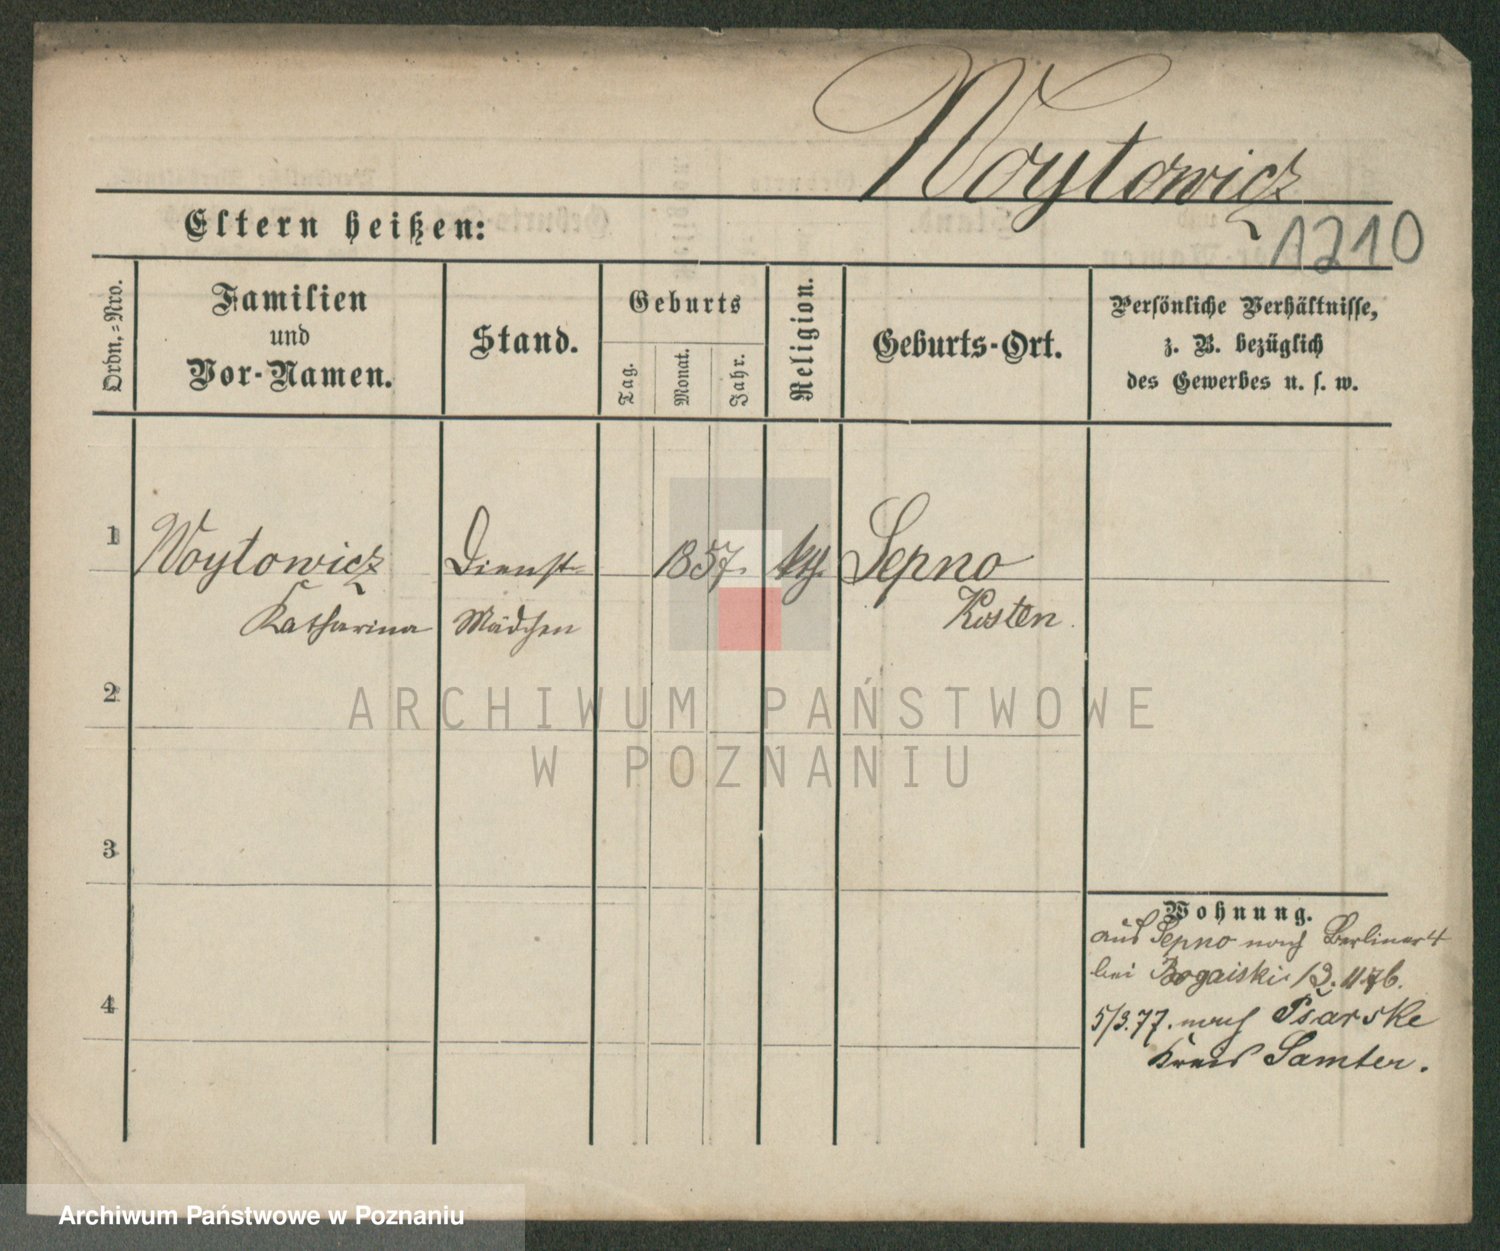 Woytowicz
1210
Eltern heißen:
Ordn.-Nro.
Familien
und
Vor-Namen.
Stand.
Geburts
Tag.
Monat.
Jahr.
Religion.
Geburts-Ort.
Persönliche Verhältnisse,
z. B. bezüglich
des Gewerbes u. s. w.
1 Woytowicz Dienst- 1857. kth. Sepno
Katharina Mädchen Kosten.
2
ARCHIWUM PAŃSTWOWE
W POZNANIU
3
Wohnung.
aus Sepno nach Berliner 4
bei Bogaiski 13. 11 76.
4
5/3.77. nach Psarske
Kreis Samter.
Archiwum Państwowe w Poznaniu